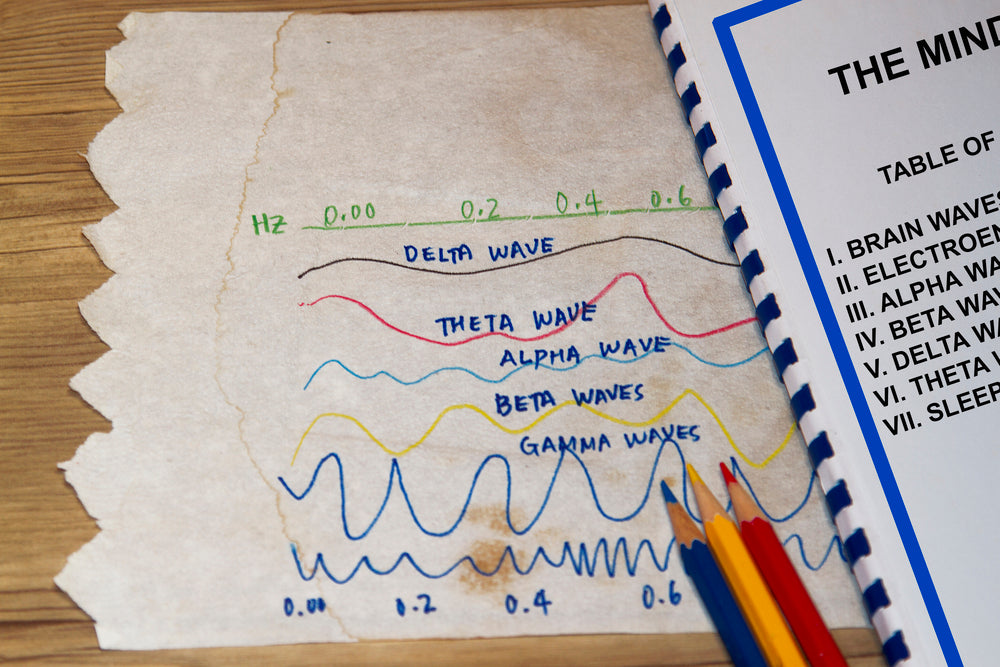 HZ 0.00 0.2 0.4 0.6
DELTA WAVE
THETA WAVE
ALPHA WAVE
BETA WAVES
GAMMA WAVES
0.00 0.2 0.4 0.6
THE MIND
TABLE OF
I. BRAIN WAVES
II. ELECTROEN
III. ALPHA WA
IV. BETA WAV
V. DELTA WA
VI. THETA
VII. SLEEP